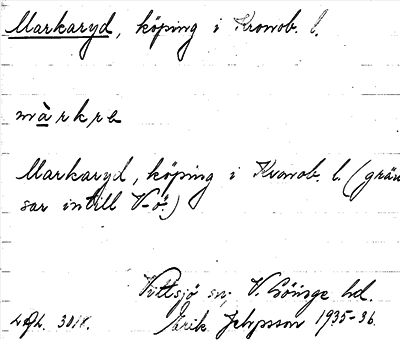 Markaryd, köping i Kronob. l.
màrkre
Markaryd, köping i Kronob. l. (grän
sar intill V-ö.)
Vittsjö sn, V. Göinge hd.
Erik Jeppsson 1935-36.